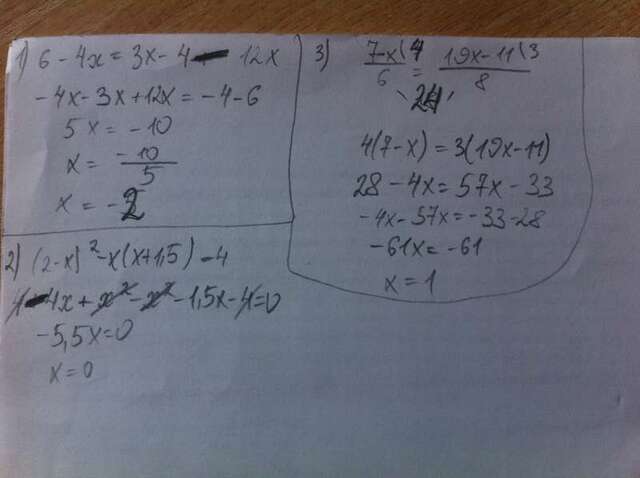 1) 6 - 4x = 3x - 4 - 12x
-4x - 3x + 12x = -4 - 6
5x = -10
x = -10/5
x = -2
2) (2-x)² - x(x+1,5) - 4
4 - 4x + x² - x² - 1,5x - 4 = 0
-5,5x = 0
x = 0
3) 7-x(4/6 = 19x-11(3/8
24
4(7-x) = 3(19x-11)
28 - 4x = 57x - 33
-4x - 57x = -33 - 28
-61x = -61
x = 1